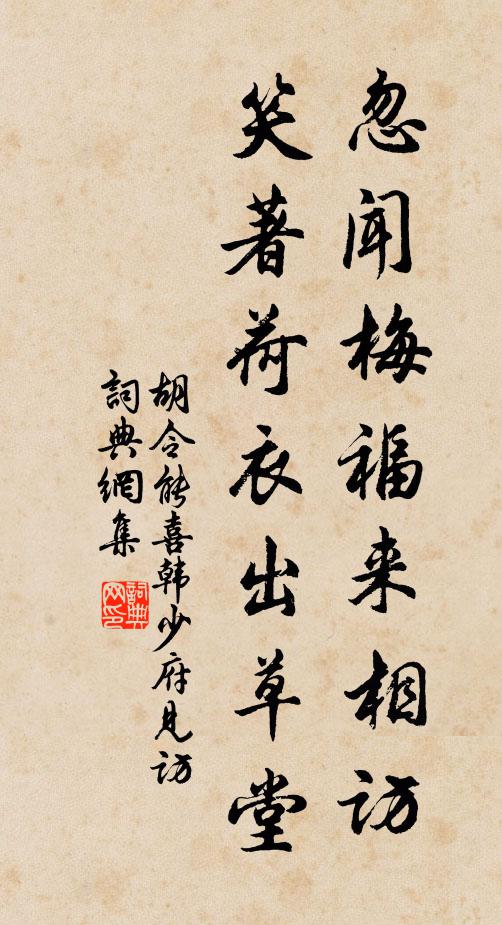 忽闻梅福来相访
笑著荷衣出草堂
胡令能喜韩少府见访
詞典網集
詞典网印